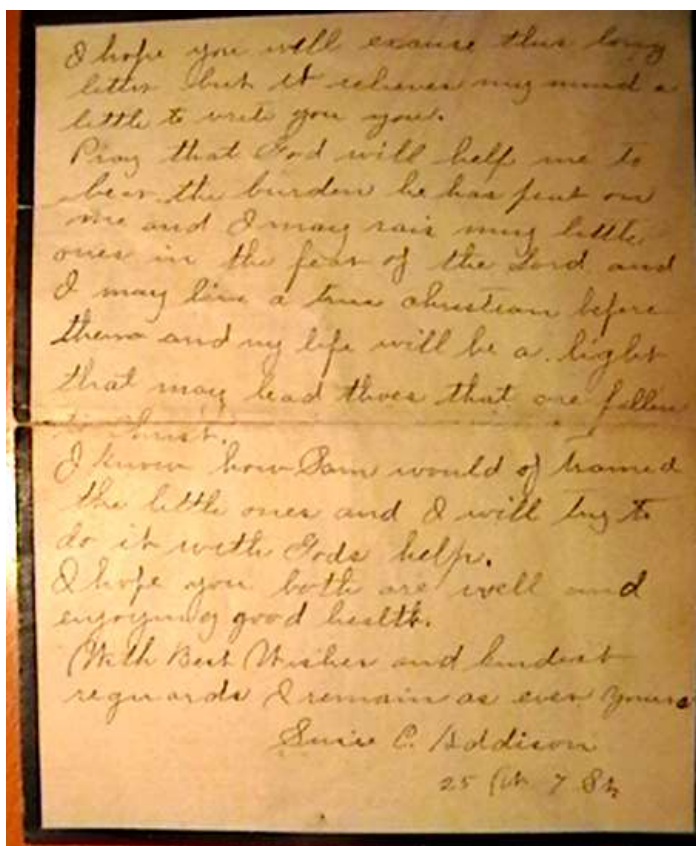 I hope you will excuse this long
letter but it relieves my mind a
little to write you you.
Pray that God will help me to
bear the burden he has put on
me and I may rais my little
ones in the fear of the Lord and
I may live a true christian before
them and my life will be a light
that may lead thoes that are fallen
to Christ.
I know how Sam would of trained
the little ones and I will try to
do it with Gods help.
I hope you both are well and
enjoying good health.
With Best Wishes and kindest
reguards I remain as ever yours
Susie C. Addison
25